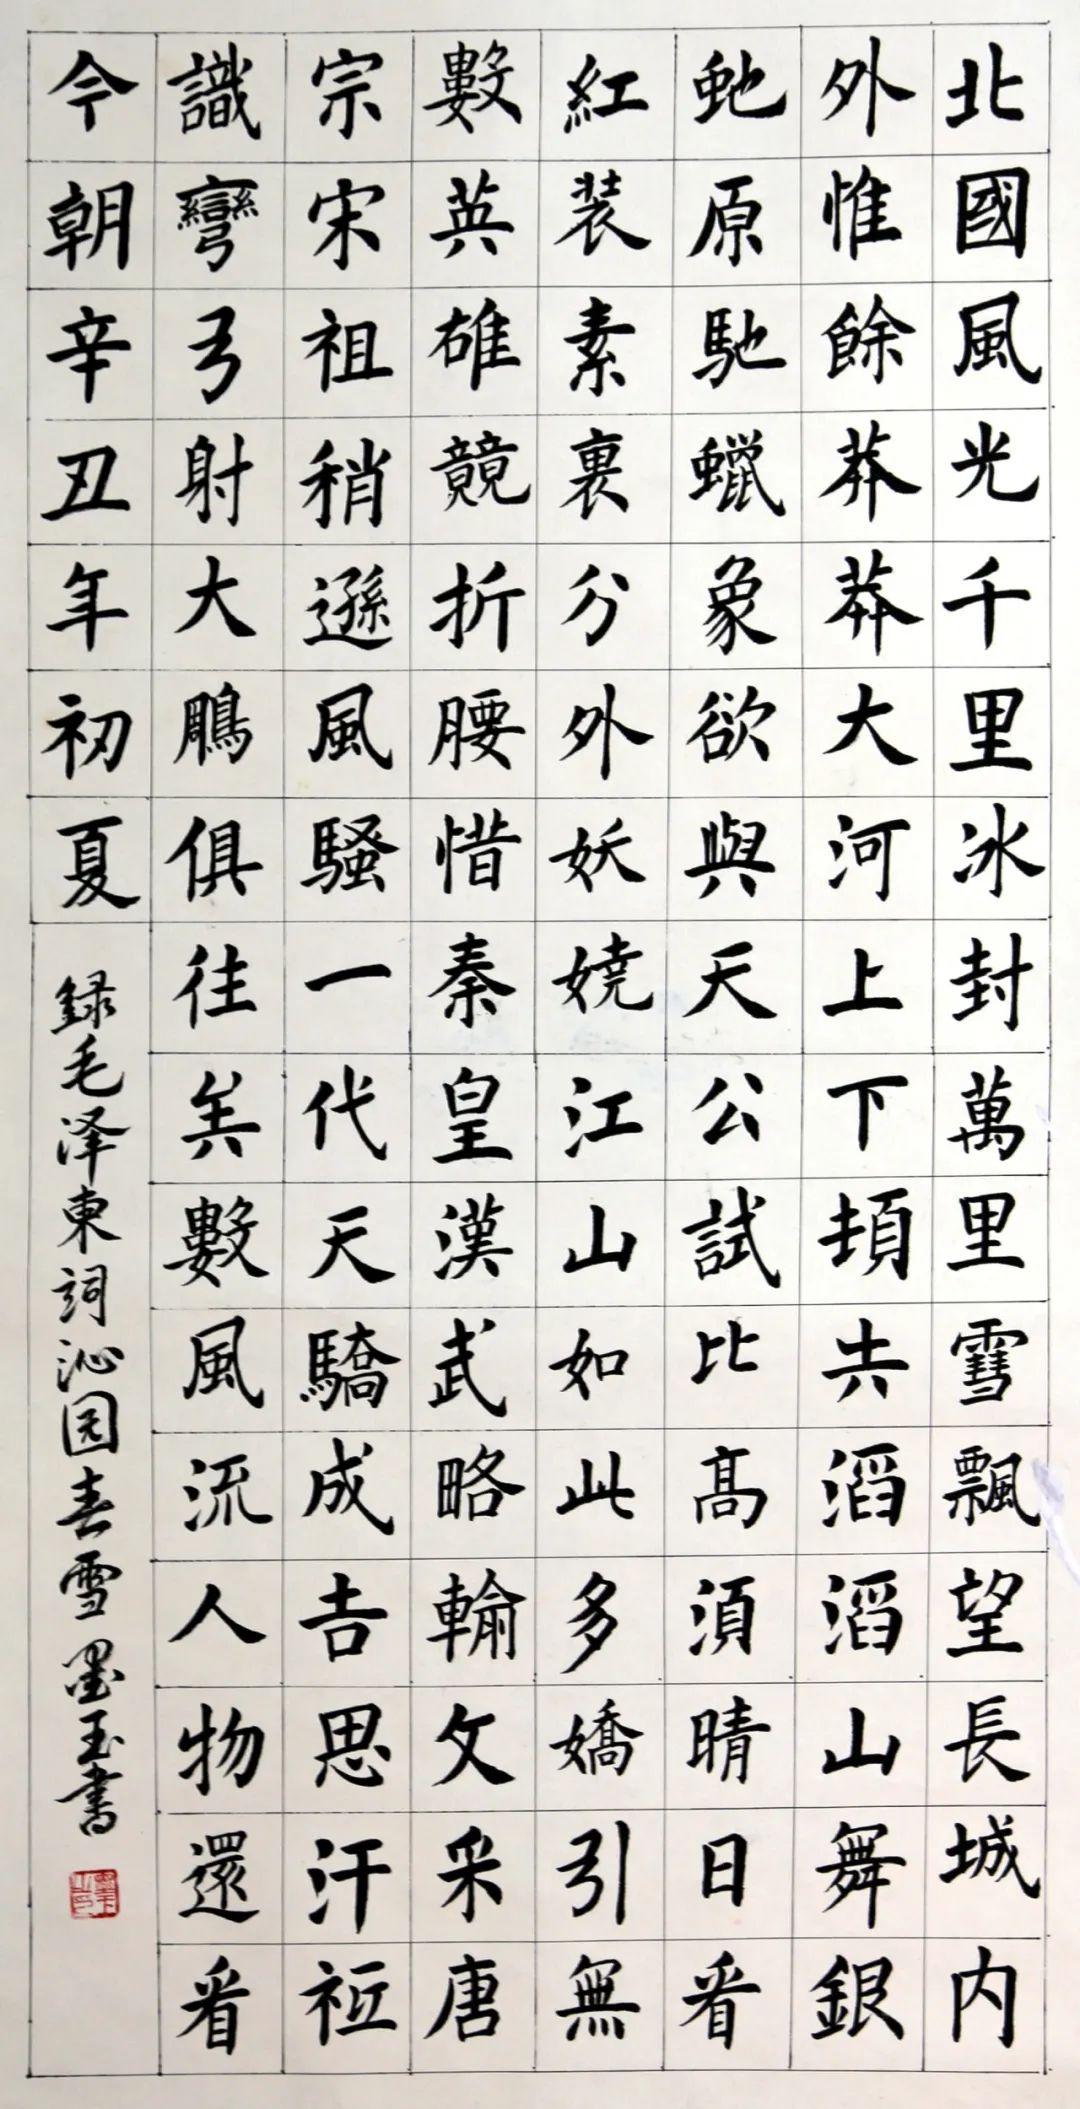 北國風光千里冰封萬里雪飄望長城内
外惟餘莽莽大河上下頓失滔滔山舞銀
虵原馳蠟象欲與天公試比髙須晴日看
紅装素裹分外妖嬈江山如此多嬌引無
數英雄競折腰惜秦皇漢武略輸文采唐
宗宋祖稍遜風騷一代天驕成吉思汗祗
識彎弓射大鵰俱往矣數風流人物還看
今朝辛丑年初夏
録毛泽東詞沁园春雪墨玉書